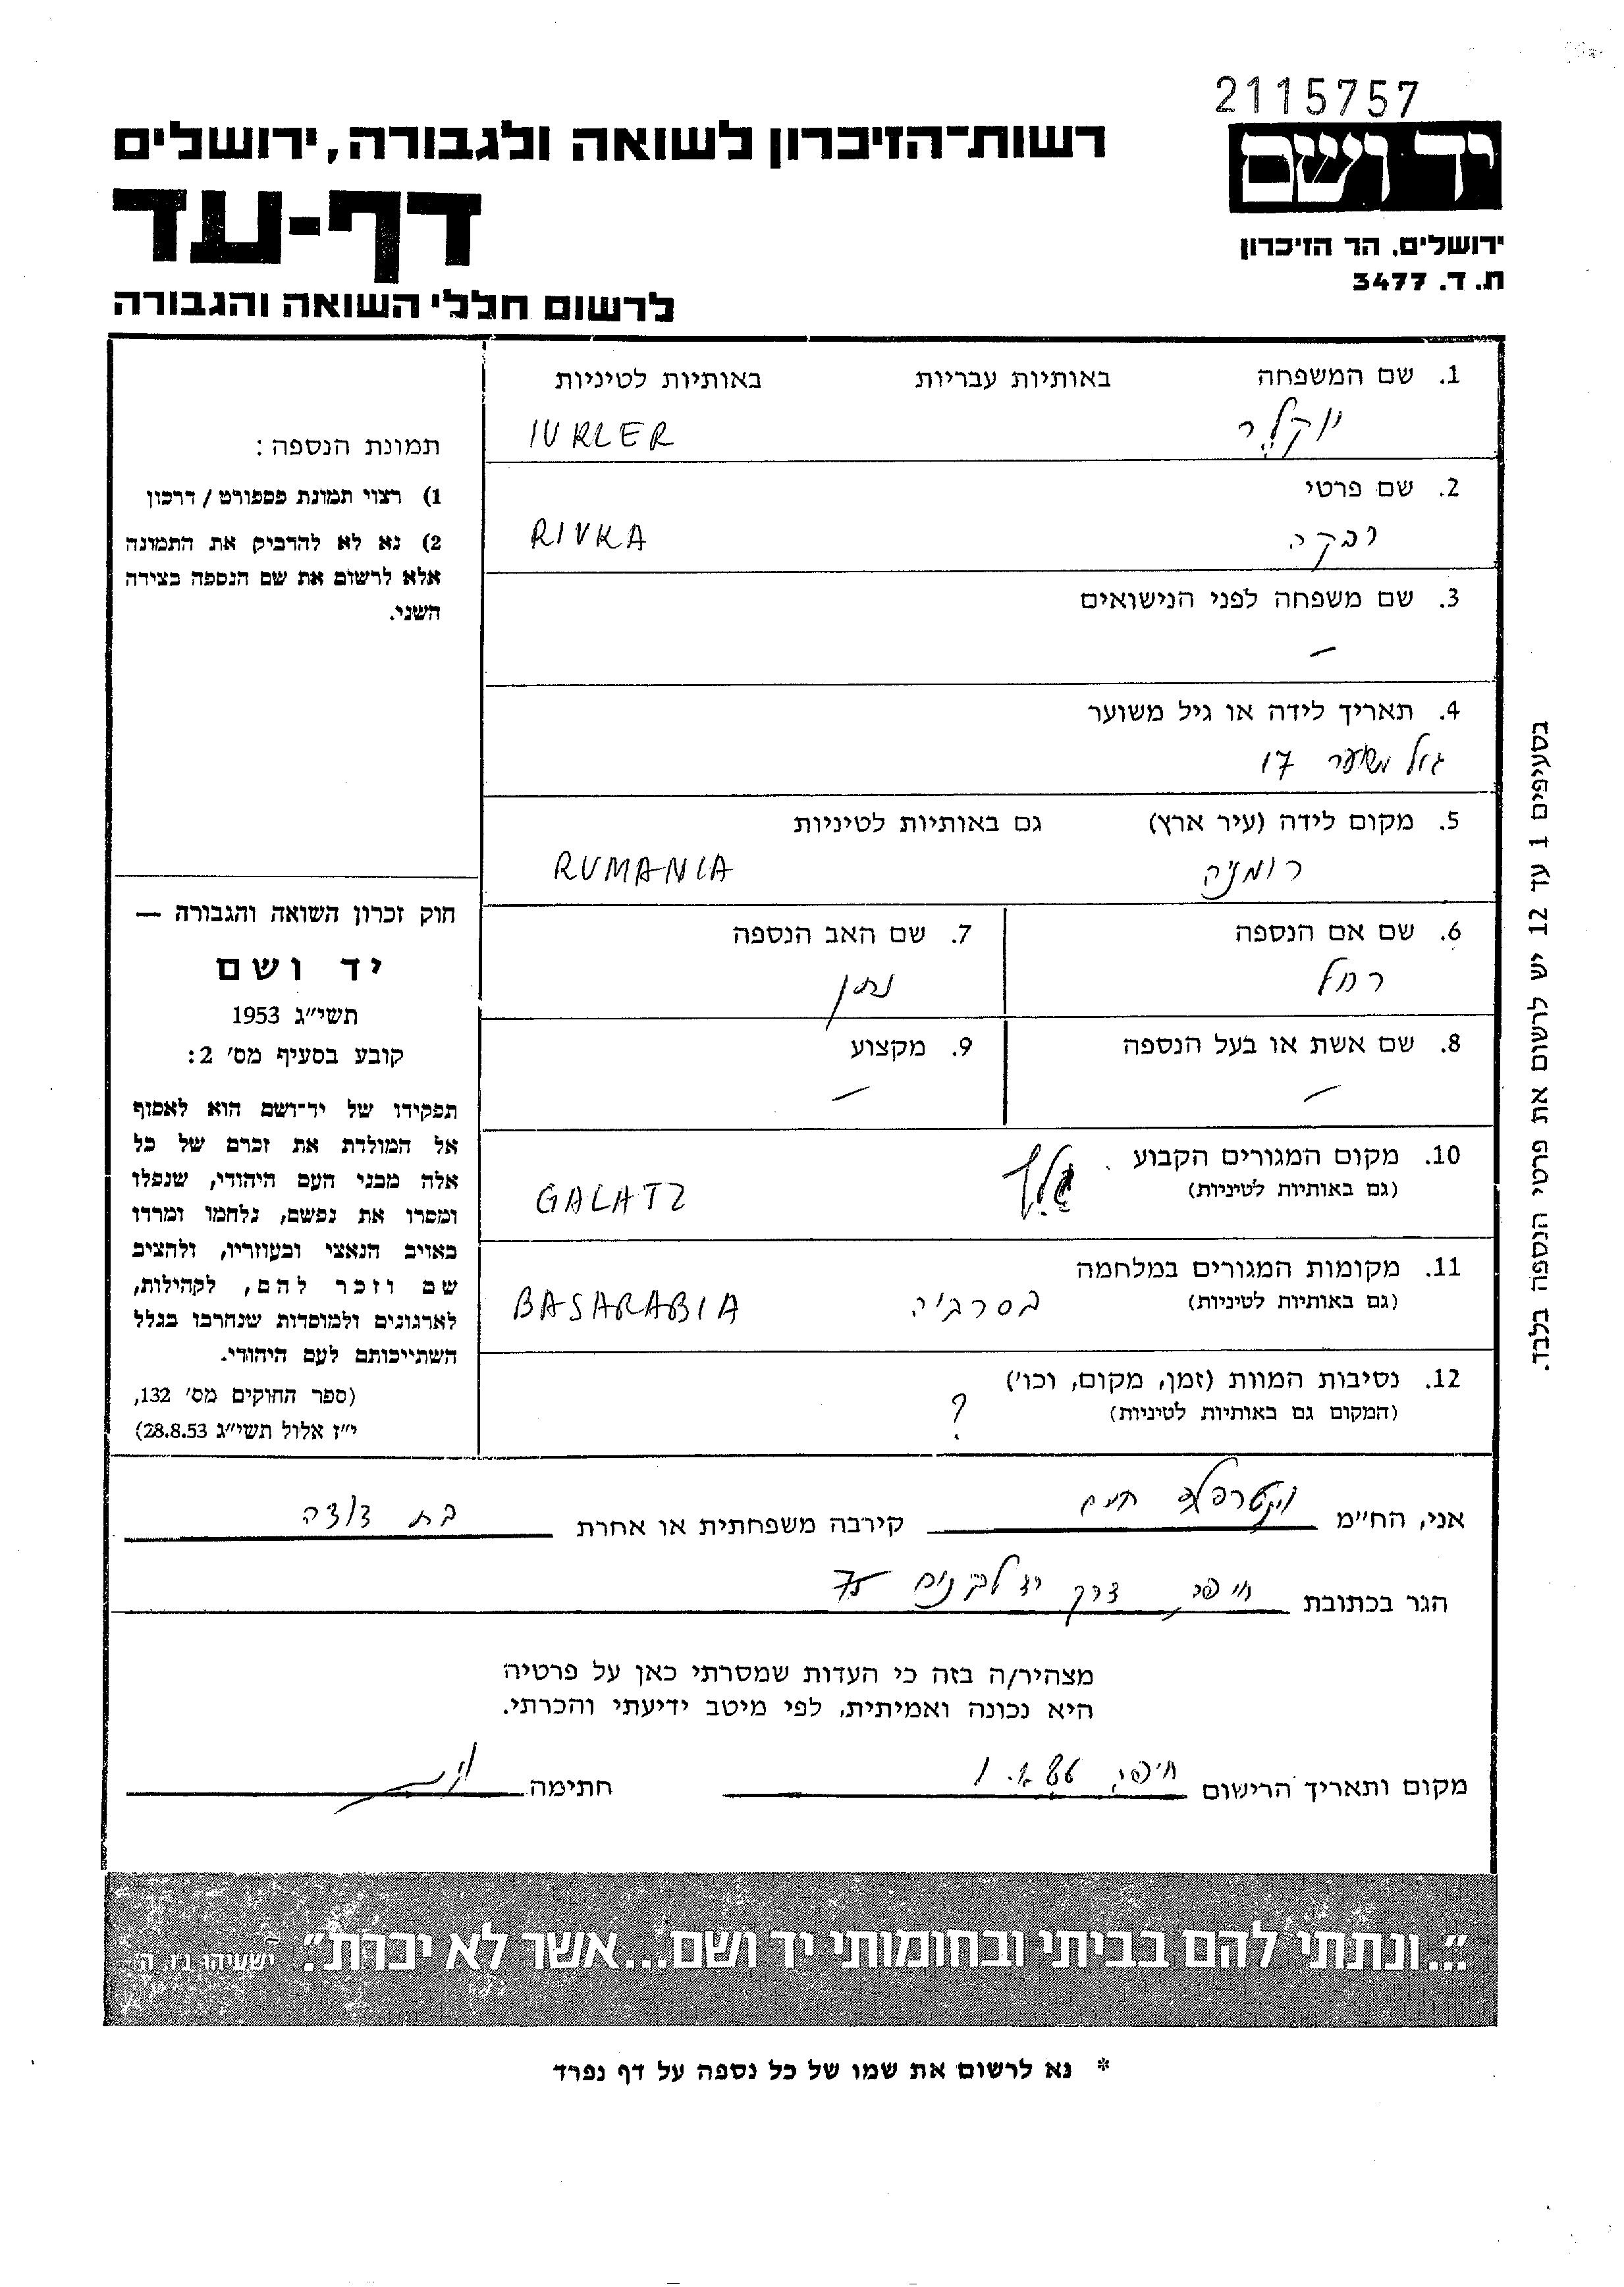 2115757
יד ושם
ירושלים, הר הזיכרון
ת.ד. 3477
רשות־הזיכרון לשואה ולגבורה, ירושלים
דף-עד
לרשום חללי השואה והגבורה
1. שם המשפחה באותיות עבריות באותיות לטיניות
יוקלר IURLER
2. שם פרטי
רבקה RIVKA
3. שם משפחה לפני הנישואים
–
4. תאריך לידה או גיל משוער
גיל משוער 17
5. מקום לידה (עיר ארץ) גם באותיות לטיניות
רומניה RUMANIA
6. שם אם הנספה 7. שם האב הנספה
רחל נתן
8. שם אשת או בעל הנספה 9. מקצוע
– –
10. מקום המגורים הקבוע
(גם באותיות לטיניות)
גלץ GALATZ
11. מקומות המגורים במלחמה
(גם באותיות לטיניות)
בסרביה BASARABIA
12. נסיבות המוות (זמן, מקום, וכו')
(המקום גם באותיות לטיניות)
?
תמונת הנספה:
1) רצוי תמונת פספורט / דרכון
2) נא לא להדביק את התמונה
אלא לרשום את שם הנספה בצידה
השני.
חוק זכרון השואה והגבורה —
יד ושם
תשי"ג 1953
קובע בסעיף מס' 2:
תפקידו של יד־ושם הוא לאסוף
אל המולדת את זכרם של כל
אלה מבני העם היהודי, שנפלו
ומסרו את נפשם, נלחמו ומרדו
באויב הנאצי ובעוזריו, ולהציב
שם וזכר להם, לקהילות,
לארגונים ולמוסדות שנחרבו בגלל
השתייכותם לעם היהודי.
(ספר החוקים מס' 132,
י"ז אלול תשי"ג 28.8.53)
בסעיפים 1 עד 12 יש לרשום את פרטי הנספה בלבד.
אני, הח"מ חיים קירבה משפחתית או אחרת בת דודה
הגר בכתובת חיפה, דרך יד לבנים 75
מצהיר/ה בזה כי העדות שמסרתי כאן על פרטיה
היא נכונה ואמיתית, לפי מיטב ידיעתי והכרתי.
מקום ותאריך הרישום חיפה, חתימה
"...ונתתי להם בביתי ובחומותי יד ושם...אשר לא יכרת." ישעיהו נ"ו, ה'
* נא לרשום את שמו של כל נספה על דף נפרד